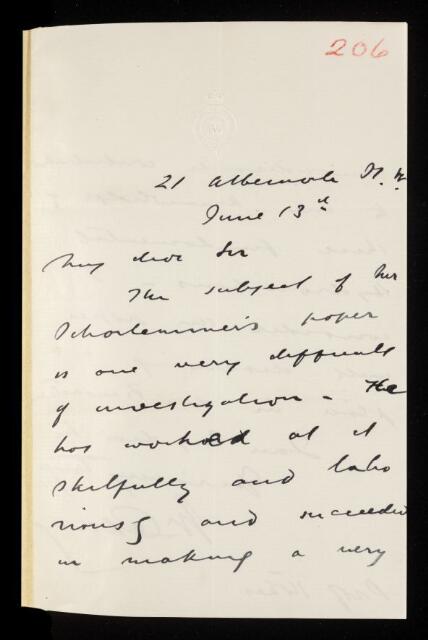 206
21 Albemarle St. W.
June 13th
My dear Sir
The subject of Mr
Schorlemmer's paper
is one very difficult
of investigation - He
has worked at it
skilfully and labo
riously and succeeded
in making a very